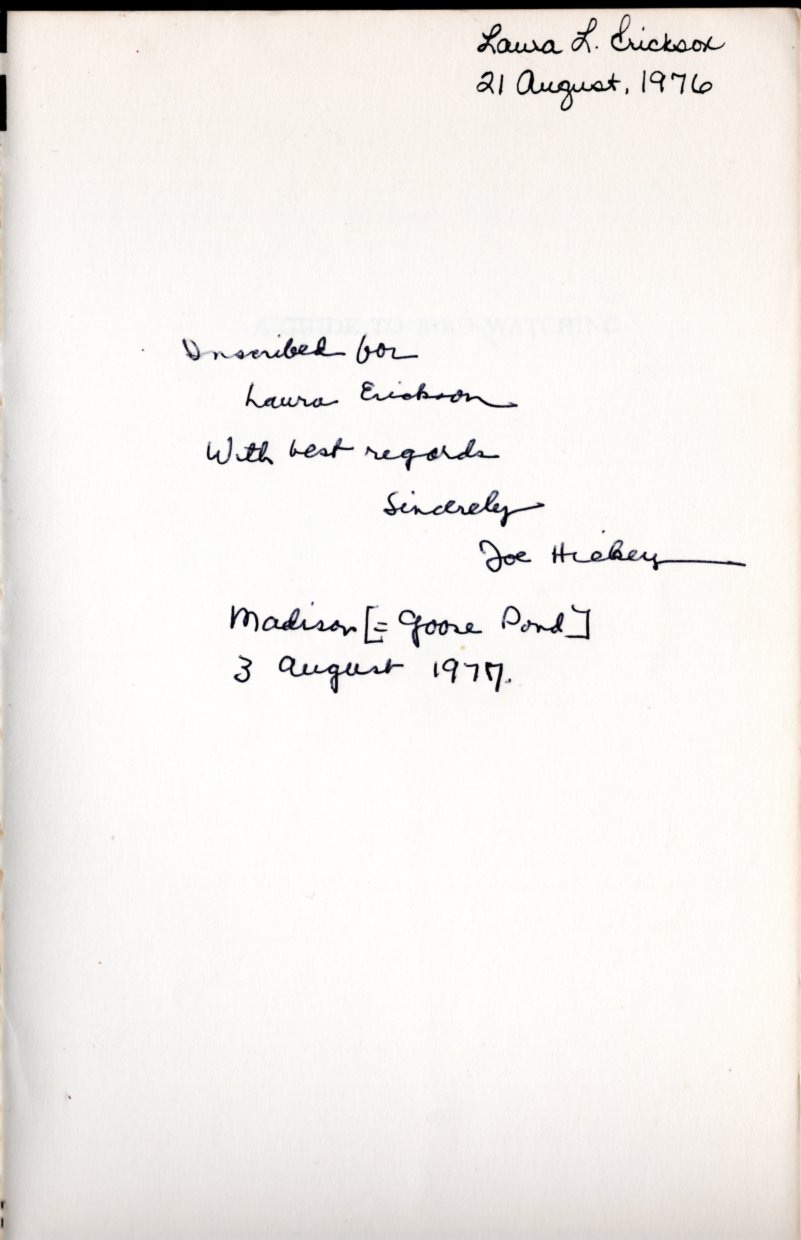 Laura L. Erickson
21 August, 1976
Inscribed for
Laura Erickson
With best regards
Sincerely
Joe Hickey
Madison [= Goose Pond]
3 August 1977.